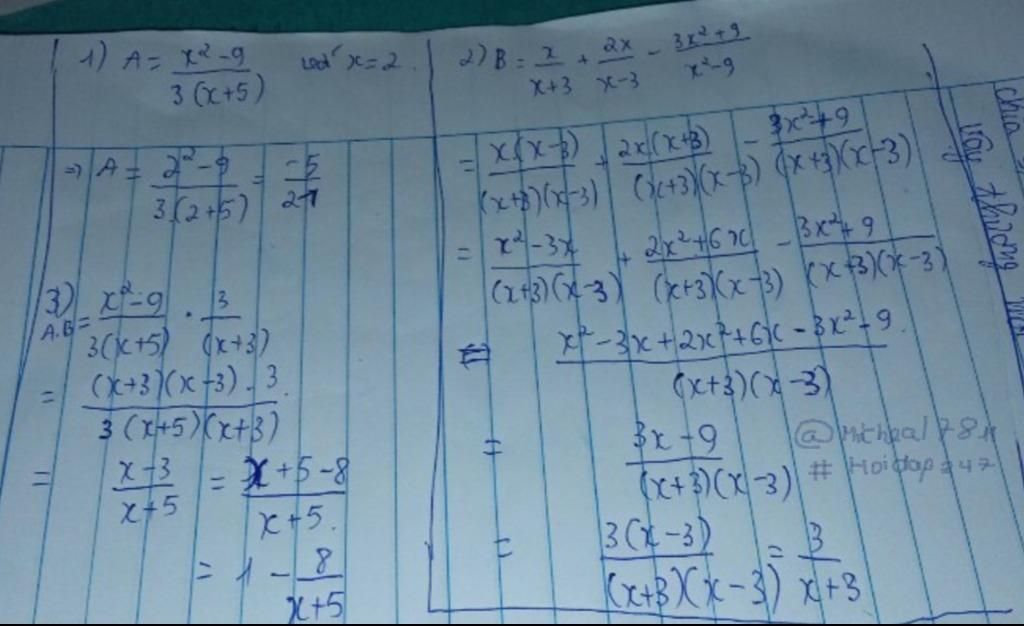 1) A = (x² - 9)/(3(x+5)) với x = 2.
⇒ A = (2² - 9)/(3.(2+5)) = -5/21
3) A.B = (x² - 9)/(3(x+5)) . 3/(x+3)
= ((x+3)(x-3) . 3)/(3(x+5)(x+3))
= (x-3)/(x+5) = (x+5-8)/(x+5).
= 1 - 8/(x+5)
2) B = x/(x+3) + 2x/(x-3) - (3x²+9)/(x²-9)
= (x.(x-3))/((x+3)(x-3)) + (2x.(x+3))/((x+3)(x-3)) - (3x²+9)/((x+3)(x-3))
= (x²-3x)/((x+3)(x-3)) + (2x²+6x)/((x+3)(x-3)) - (3x²+9)/((x+3)(x-3))
= (x²-3x+2x²+6x-3x²-9)/((x+3)(x-3))
= (3x-9)/((x+3)(x-3))
= (3(x-3))/((x+3)(x-3)) = 3/(x+3)
# Hoidap247